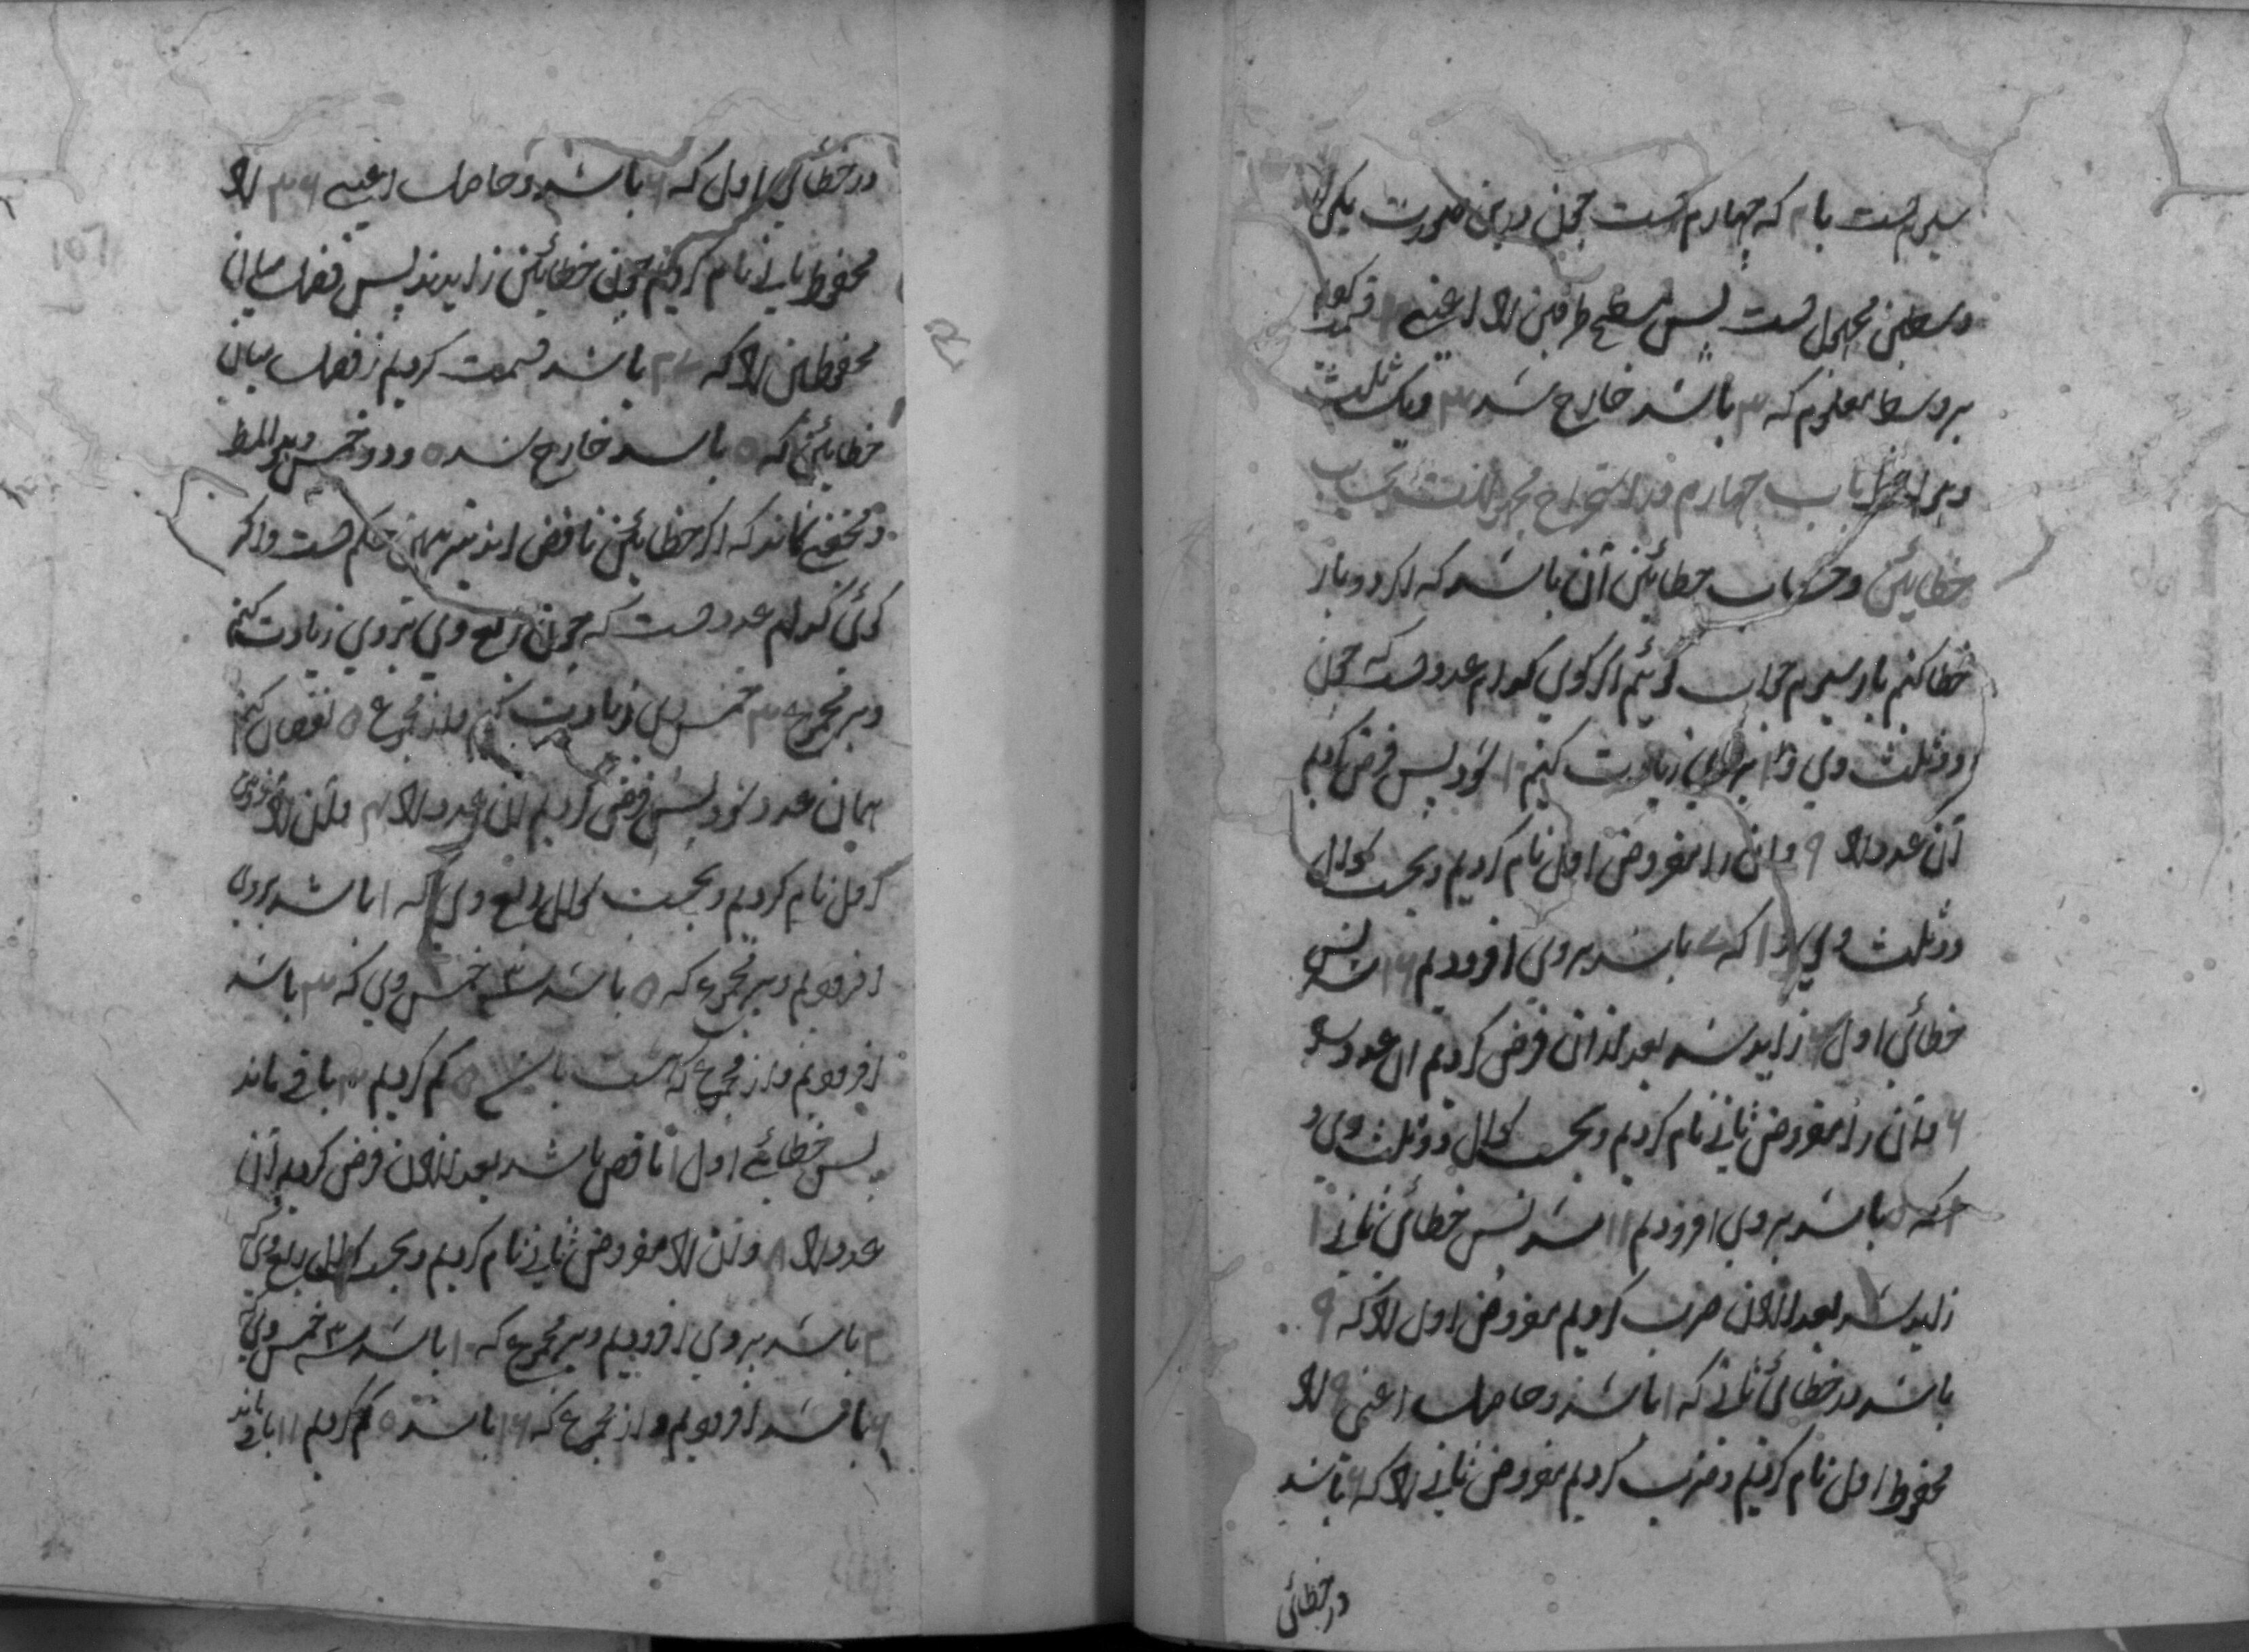 سیوم است با ۴ که چهارم است چون درین صورت یکی از
وسطین مجهول است پس مسطح طرفین را اعنی
بر وسط معلوم که ۳ باشد خارج شد ۳ و یک ثلث
باب چهارم در استخراج مجهولات بحساب
خطایئن و حساب خطایئن آن باشد که اگر دو بار
خطا کنم بار سیوم جواب گوئیم اگر گوی کدام عدد است که چون
دو ثلث وی و ۱ بر وی زیادت کنیم ۱۰ شود پس فرض کردیم
آن عدد را ۹ و آن را مفروض اول نام کردیم و بحسب سوال
دو ثلث وی و ۱ که ۷ باشد بر وی افزودیم ۱۶ شد پس
خطائی اول ۶ زاید شد بعد از آن فرض کردیم آن عدد را
۶ و آن را مفروض ثانی نام کردیم و بحسب سوال دو ثلث وی و
۱ که ۵ باشد بر وی افزودیم ۱۱ شد پس خطائی ثانی ۱
زاید شد بعد از آن ضرب کردیم مفروض اول را که ۹
باشد در خطائی ثانی که ۱ باشد و حاصل اعنی ۹ را
محفوظ اول نام کردیم و ضرب کردیم مفروض ثانی را که ۶ باشد
در خطائی
در خطائی اول که ۶ باشد و حاصل اعنی ۳۶ را
محفوظ ثانی نام کردیم چون خطایئن زایدند پس فضل میان
محفوظین را که ۲۷ باشد قسمت کردیم بر فضل میان
خطایئن که ۵ باشد خارج شد ۵ و دو خمس و هو المط
و مخفی نماند که اگر خطایئن ناقص اند نیز همین حکم است و اگر
گوئی کدام عدد است که چون ربع وی بر وی زیادت کنیم
و بر مجموع ۳ خمس وی زیادت کنیم و از مجموع ۵ نقصان کنیم
همان عدد شود پس فرض کردیم آن عدد را ۴ و آن را مفروض
اول نام کردیم و بحسب سوال ربع وی که ۱ باشد بر وی
افزودیم و بر مجموع که ۵ باشد ۳ خمس وی که ۳ باشد
افزودیم و از مجموع که ۸ باشد ۵ کم کردیم ۳ باقی ماند
پس خطائی اول ۱ ناقص باشد بعد از آن فرض کردیم آن
عدد را ۸ و آن را مفروض ثانی نام کردیم و بحسب سوال ربع وی که
۲ باشد بر وی افزودیم و بر مجموع که ۱۰ باشد ۳ خمس وی که
۶ باشد افزودیم و از مجموع که ۱۶ باشد ۵ کم کردیم ۱۱ باقی ماند